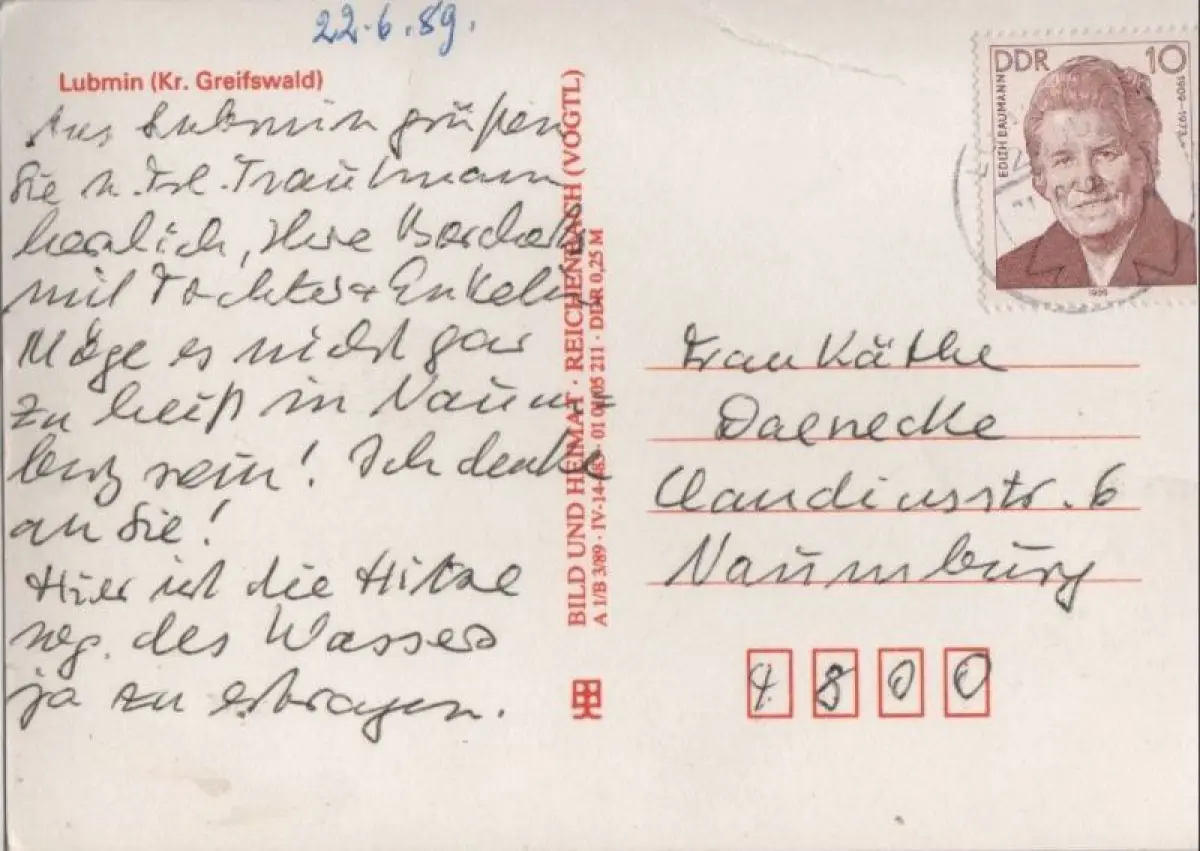 22.6.89.
Lubmin (Kr. Greifswald)
Aus Lubmin grüßen
Sie u. Frl. Trautmann
herzlich, Ihre
mit Tochter + Enkelin
Möge es nicht gar
zu heiß in Naum=
burg sein! Ich denke
an Sie!
Hier ist die Hitze
weg. des Wassers
ja zu ertragen.
BILD UND HEIMAT · REICHENBACH (VOGTL)
A 1/B 3/89 · IV-14-483 · 01 01 05 211 · DDR 0,25 M
DDR 10
EDITH BAUMANN
1909–1973
Frau Käthe
Daenecke
Claudiusstr. 6
Naumburg
4800